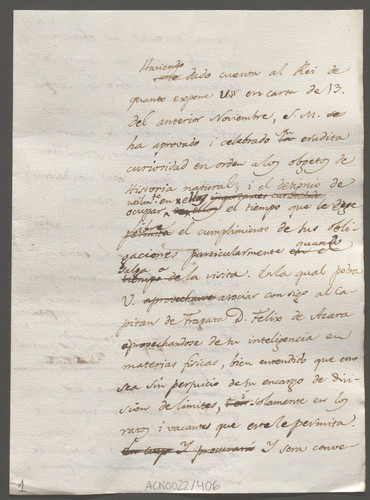 Haviendo
dado cuenta al Rei de
quanto expone en carta de 13.
del anterior Noviembre, S. M. se
ha aprovado i celebrado la erudita
curiosidad en orden a los objetos de
Historia natural, i el designio de
en ellos importantes curiosidades
ocupar el tiempo que le deje
permita el cumplimiento de sus obli-
gaciones particularmente en el quando
salga a
tiempo de la visita. En la qual podra
V. aprovecharse asociar consigo al Ca-
pitan de Fragata D. Felix de Azara
aprovechandose de su inteligencia en
materias fisicas, bien entendido que esto
sea sin perjuicio de su encargo de divi-
sion de limites, solamente en los
ratos i vacantes que este le permita.
Y procurará Y sera conve-
1
ACN0022/406